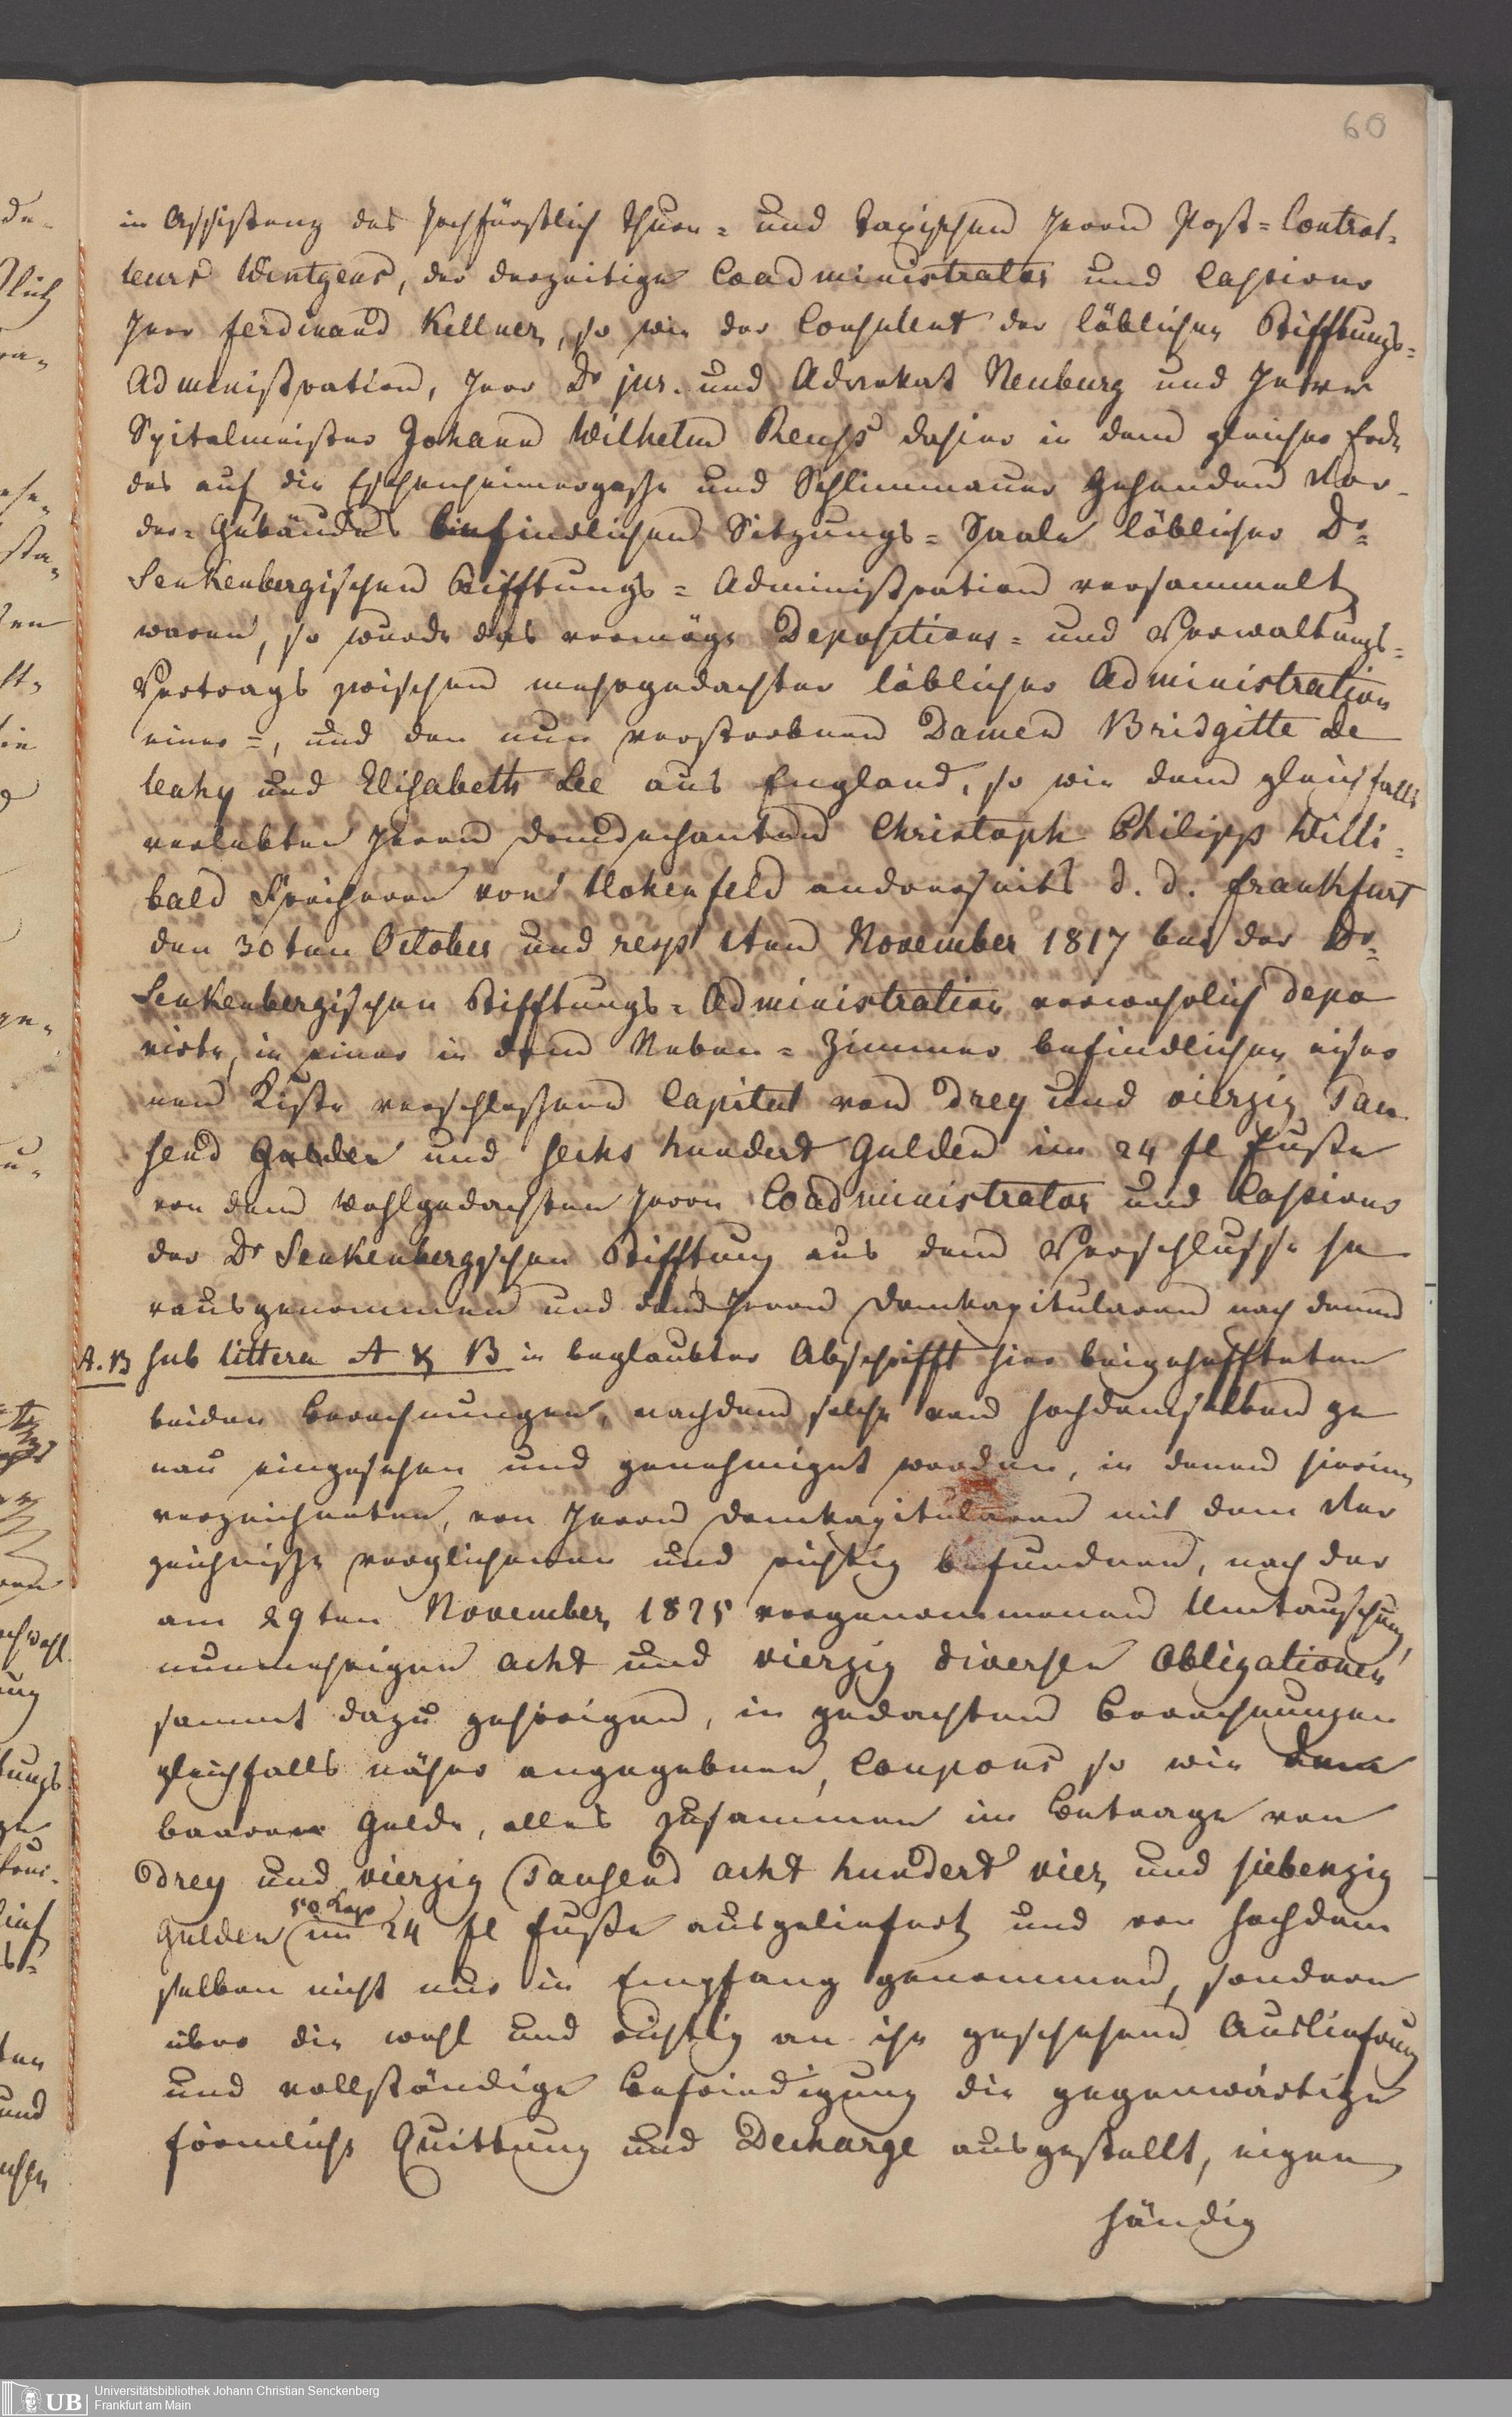 60
in Assistenz des hochfürstlich Thurn= und Taxischen Herrn Post=Control=
leurs Wentgens, der derzeitige Coadministrator und Cassierer
Herr Ferdinand Kellner, so wie der Consulent der löblichen Stifftungs=
Administration, Herr Dr jur. und Advokat Neuburg und Herr
Spitalmeister Johann Wilhelm Reuss dahier in dem gleicher Erde
des auf die Eschenheimergasse und Schlimmauer gehenden Vor=
der=Gebäudes befindlichen Sitzungs=Saale löblicher Dr=
Senkenbergischen Stifftungs=Administration versammelt
waren, so wurde das vermöge Depositions= und Verwaltungs=
Vertrags zwischen mehrgedachter löblicher Administration
einer=, und den nun verstorbenen Damen Bridgitte de
Leahy und Elisabeth Lee aus England, so wie dem gleichfalls
verlebten Herrn Domdechanten Christoph Philipp Willi=
bald Freiherrn von Hohenfeld anderseits d. d. Frankfurt
den 30ten October und resp 1ten November 1817 bei der Dr=
Senkenbergischen Stifftungs=Administration verwahrlich depo
nirte, in einer in dem Neben=Zimmer befindlichen eiser
nen Kiste verschlossene Capital von Drey und vierzig Tau
send Gulden und sechs hundert Gulden im 24 fl Fuße
von dem Wohlgedachten Herrn Coadministrator und Cassierer
der Dr Senkenbergschen Stifftung aus dem Verschlusse he
rausgenommen und dem Herrn Domkapitularen nach denen
A. B sub littera A & B in beglaubter Abschrifft hier beigehefteten
beiden Berechnungen, nachdem solche von Hochdemselben ge
nau eingesehen und genehmiget worden, in denen hierin
verzeichneten, von Herrn Domkapitularen mit dem Ver
zeichnisse verglichenen und richtig befundenen, nach der
am 29ten November 1825 vorgenommenen Umtauschung,
nunmehrigen acht und vierzig diversen Obligationen
sammt dazu gehörigen, in gedachten Berechnungen
gleichfalls näher angegebenen, Coupons so wie dem
baaren Gelde, alles zusammen im Betrage von
Drey und vierzig Tausend acht hundert vier und siebenzig
Gulden 50 Kr im 24 fl Fuße ausgeliefert und von hochdem
selben nicht nur in Empfang genommen, sondern
über die wohl und richtig an ihn geschehene Auslieferung
und vollständige Befriedigung die gegenwärtige
förmliche Quittung und Decharge ausgestellt, eigen
händig
Universitätsbibliothek Johann Christian Senckenberg
Frankfurt am Main
UB